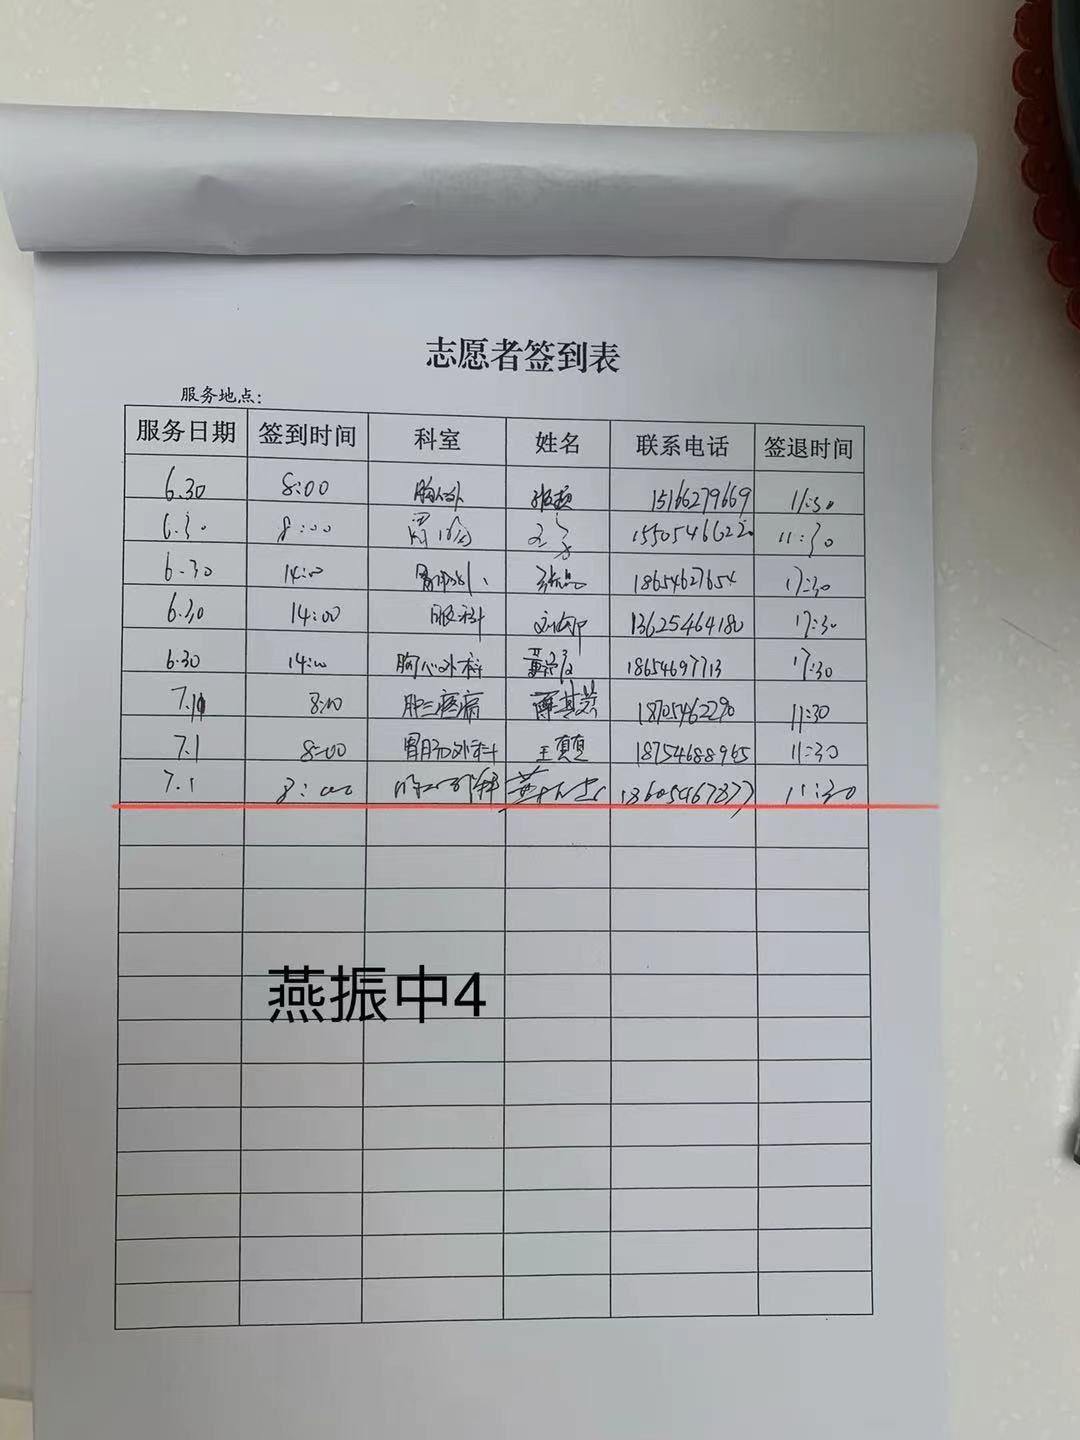 志愿者签到表
服务地点:
服务日期 签到时间 科室 姓名 联系电话 签退时间
6.30 8:00 胸心外 15166279669 11:30
6.30 8:00 11:30
6.30 14:00 胃肠外 17:30
6.30 14:00 眼科 13625464180 17:30
6.30 14:00 胸心外科 18654697713 17:30
7.1 8:00 肿三疼痛 薛其兰 18705462290 11:30
7.1 8:00 胃肠外科 王真真 18754688965 11:30
7.1 8:00 11:30
燕振中4